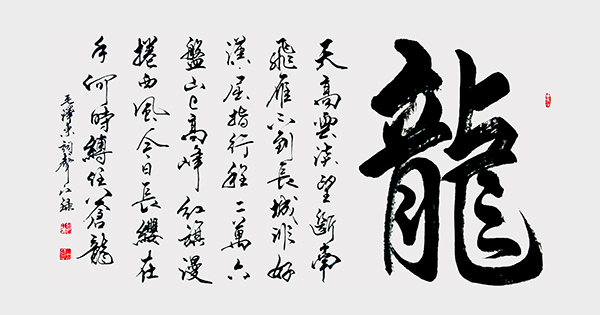 龍
天高雲淡望斷南
飛雁不到長城非好
漢屈指行程二萬六
盤山上高峰紅旗漫
捲西風今日長纓在
手何時縛住蒼龍
毛澤東詞